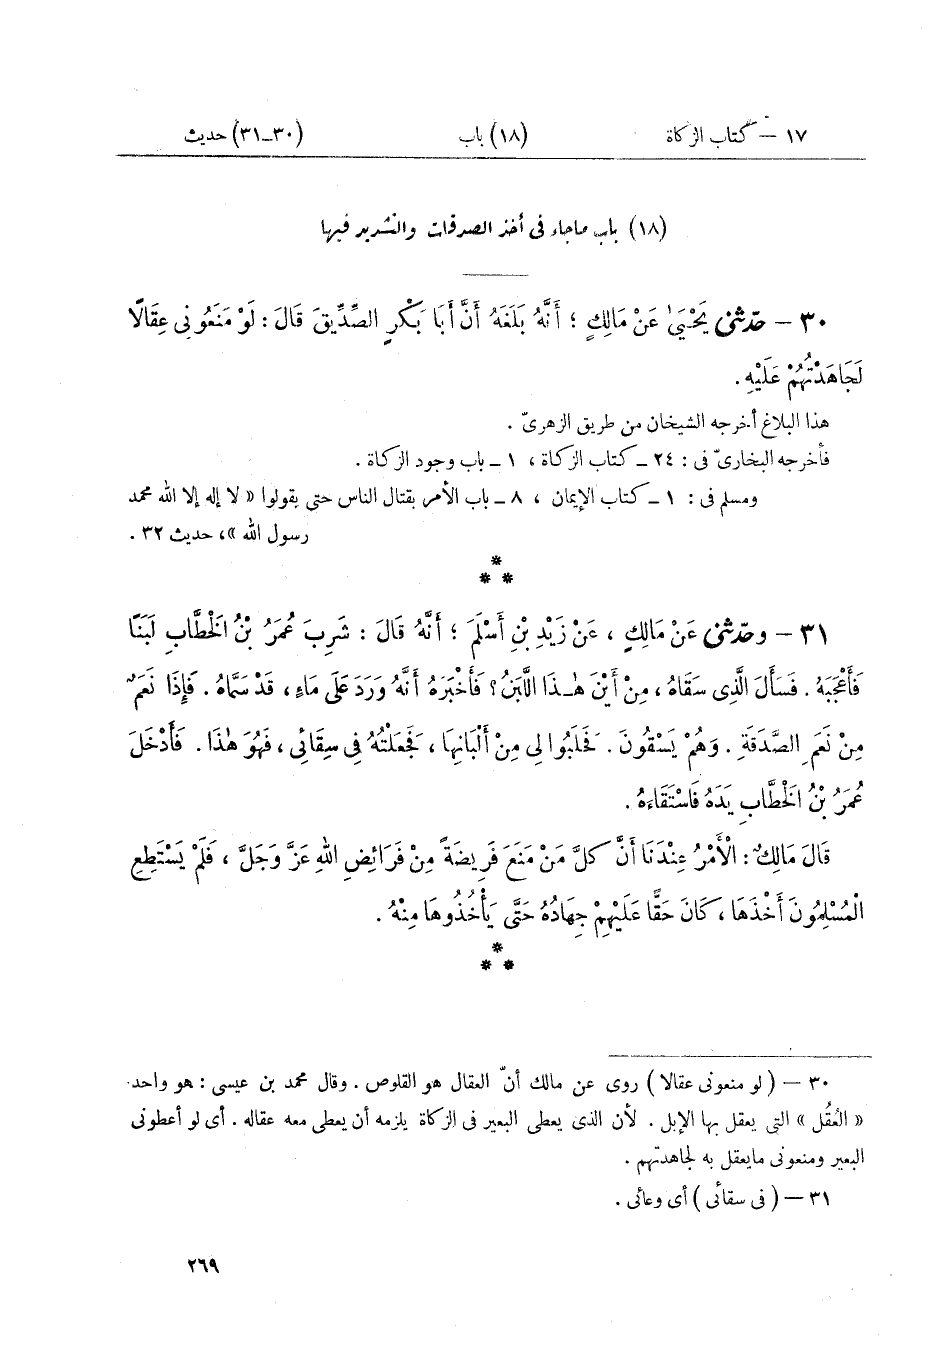 ١٧ – كتاب الزكاة (١٨) باب (٣٠–٣١) حديث
(١٨) باب ماجاء فى أخذ الصدقات والتشديد فيها
٣٠ – حَدَّثَنِى يَحْيَىٰ عَنْ مَالِكٍ ؛ أَنَّهُ بَلَغَهُ أَنَّ أَبَا بَكْرٍ الصِّدِّيقَ قَالَ : لَوْ مَنَعُونِى عِقَالًا
لَجَاهَدْتُهُمْ عَلَيْهِ .
هذا البلاغ أخرجه الشيخان من طريق الزهرىّ .
فأخرجه البخارىّ فى : ٢٤ – كتاب الزكاة ، ١ – باب وجود الزكاة .
ومسلم فى : ١ – كتاب الإيمان ، ٨ – باب الأمر بقتال الناس حتى يقولوا « لا إله إلا الله محمد
رسول الله »، حديث ٣٢ .
*
* *
٣١ – وحَدَّثَنِى عَنْ مَالِكٍ ، عَنْ زَيْدِ بْنِ أَسْلَمَ ؛ أَنَّهُ قَالَ : شَرِبَ عُمَرُ بْنُ الْخَطَّابِ لَبَنًا
فَأَعْجَبَهُ . فَسَأَلَ الَّذِى سَقَاهُ ، مِنْ أَيْنَ هٰذَا اللَّبَنُ ؟ فَأَخْبَرَهُ أَنَّهُ وَرَدَ عَلَى مَاءٍ ، قَدْ سَمَّاهُ . فَإِذَا نَعَمٌ
مِنْ نَعَمِ الصَّدَقَةِ . وَهُمْ يَسْقُونَ . فَحَلَبُوا لِى مِنْ أَلْبَانِهَا ، فَجَعَلْتُهُ فِى سِقَائِى ، فَهُوَ هٰذَا . فَأَدْخَلَ
عُمَرُ بْنُ الْخَطَّابِ يَدَهُ فَاسْتَقَاءَهُ .
قَالَ مَالِكٌ : الْأَمْرُ عِنْدَنَا أَنَّ كُلَّ مَنْ مَنَعَ فَرِيضَةً مِنْ فَرَائِضِ اللهِ عَزَّ وَجَلَّ ، فَلَمْ يَسْتَطِعِ
الْمُسْلِمُونَ أَخْذَهَا ، كَانَ حَقًّا عَلَيْهِمْ جِهَادُهُ حَتَّى يَأْخُذُوهَا مِنْهُ .
*
* *
٣٠ – ( لو منعونى عقالا ) روى عن مالك أنّ العقال هو القلوص . وقال محمد بن عيسى : هو واحد
« العُقُل » التى يعقل بها الإبل . لأن الذى يعطى البعير فى الزكاة يلزمه أن يعطى معه عقاله . أى لو أعطونى
البعير ومنعونى مايعقل به لجاهدتهم .
٣١ – ( فى سقائى ) أى وعائى .
٢٦٩